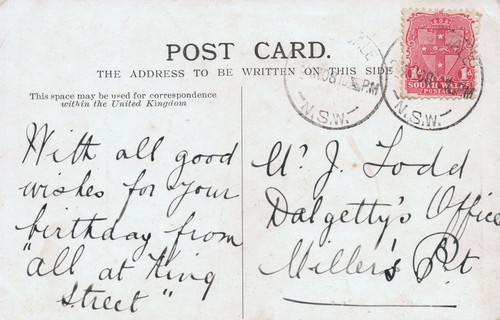 POST CARD.
THE ADDRESS TO BE WRITTEN ON THIS SIDE
This space may be used for correspondence
within the United Kingdom
With all good
wishes for your
birthday from
"all at King
Street"
J. Todd
Dalgetty's Office
Miller's Pt
SOUTH WALES
POSTAGE
N.S.W.
N.S.W.